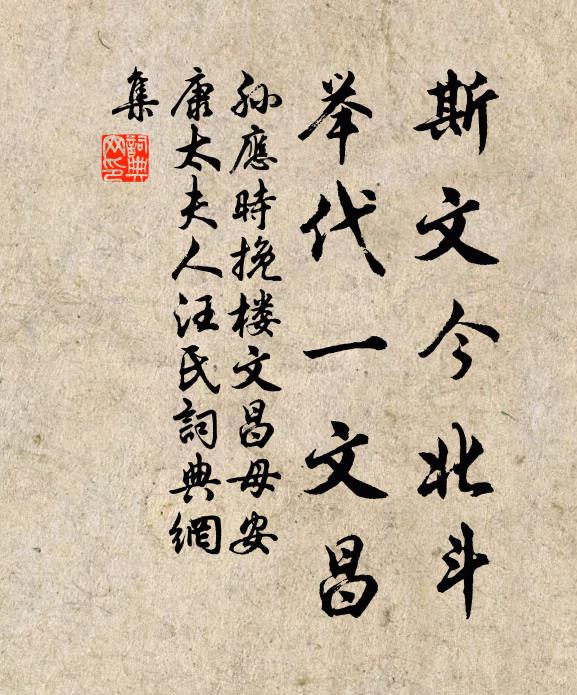 斯文今北斗
举代一文昌
孙應時挽楼文昌母安
康太夫人汪氏詞典網
集
詞典
网印